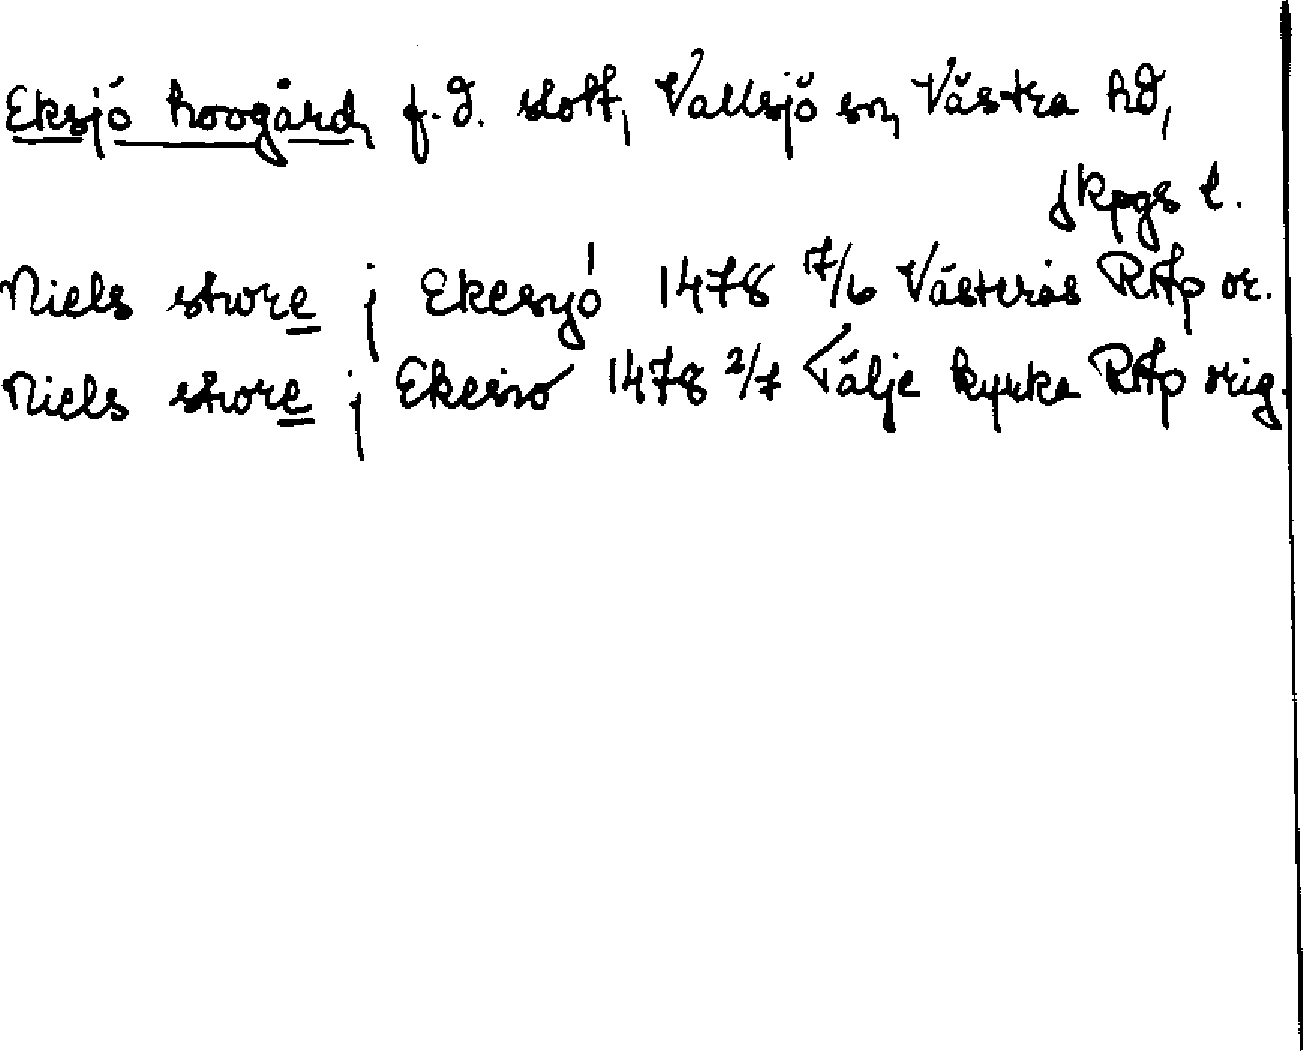 Eksjö hovgård, f.d. slott, Vallsjö sn, Västra hd,
Jkpgs l.
Niels stwre j Ekesyó 1478 7/6 Västerås RAp or.
Niels stwre j Ekesio 1478 2/7 Tälje kyrka RAp orig.